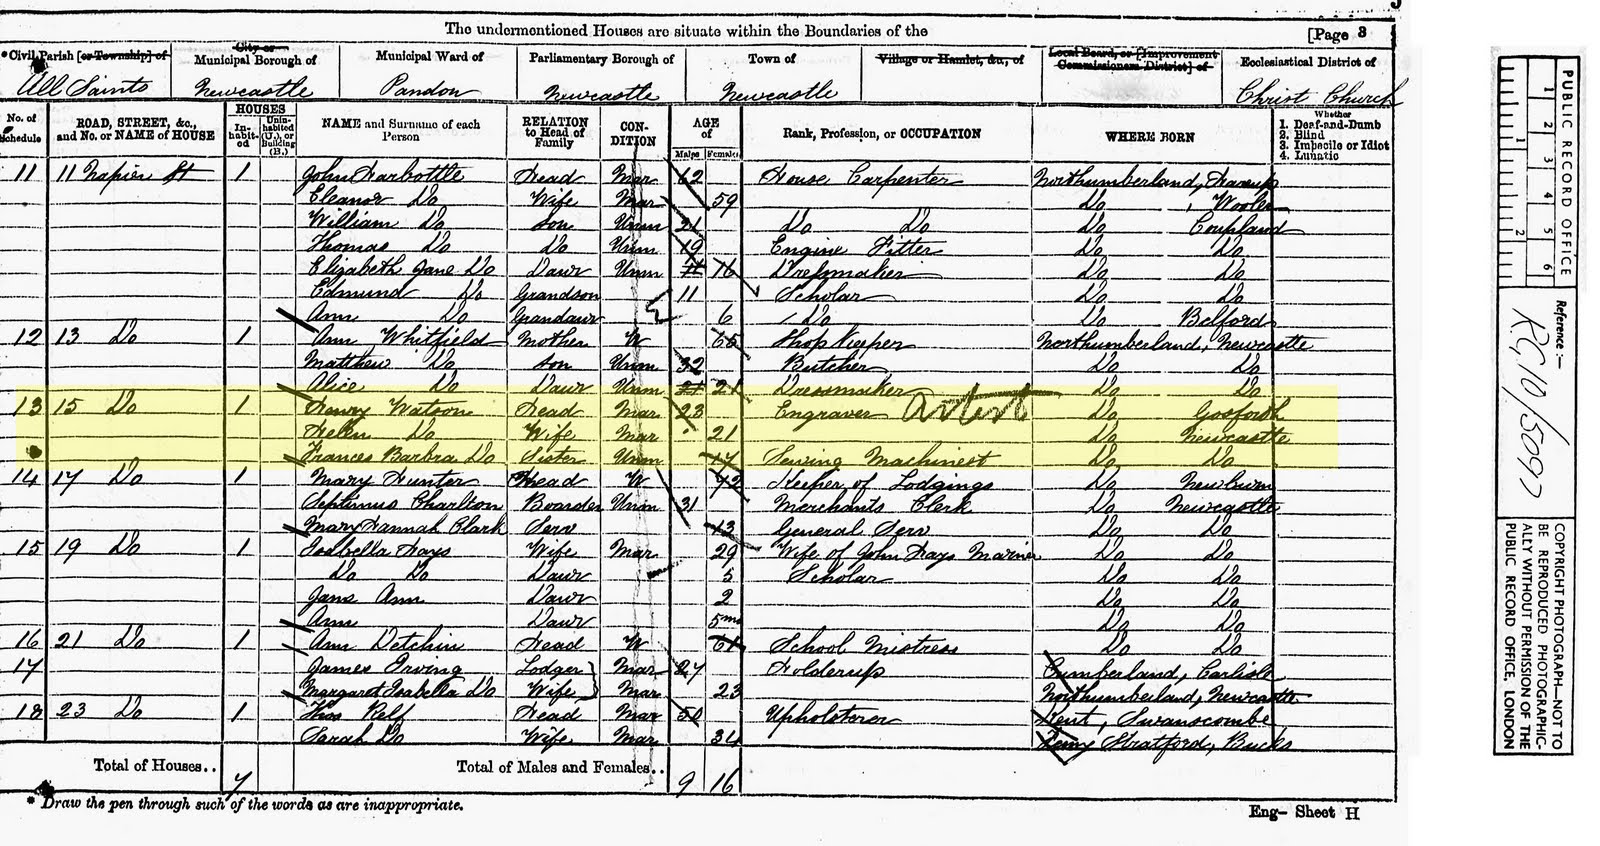 The undermentioned Houses are situate within the Boundaries of the [Page 3
*Civil Parish [or Township] of City or Municipal Borough of Municipal Ward of Parliamentary Borough of Town of Village or Hamlet, &c., of Local Board, or [Improvement Commissioners District] of Ecclesiastical District of
All Saints Newcastle Pandon Newcastle Newcastle Christ Church
No. of Schedule ROAD, STREET, &c., and No. or NAME of HOUSE HOUSES Inhabited Uninhabited (U.), or Building (B.) NAME and Surname of each Person RELATION to Head of Family CONDITION AGE of Males Females Rank, Profession, or OCCUPATION WHERE BORN Whether 1. Deaf-and-Dumb 2. Blind 3. Imbecile or Idiot 4. Lunatic
11 11 Napier St 1 John Harbottle Head Mar 62 House Carpenter Northumberland,
Eleanor Do Wife Mar 59 Do Wooler
William Do Son Unm 21 Do Do Do Coupland
Thomas Do Do Unm 19 Engine Fitter Do Do
Elizabeth Jane Do Daur Unm 16 Dressmaker Do Do
Edmund Do Grandson 11 Scholar Do Do
Ann Do Grandaur 6 Do Do Belford
12 13 Do 1 Ann Whitfield Mother W 65 Shop Keeper Northumberland, Newcastle
Matthew Do Son Unm 32 Butcher Do Do
Alice Do Daur Unm 21 21 Dressmaker Do Do
13 15 Do 1 Henry Watson Head Mar 23 Engraver Artist Do Gosforth
Helen Do Wife Mar 21 Do Newcastle
Frances Barbra Do Sister Unm 17 Sewing Machinest Do Do
14 17 Do 1 Mary Hunter Head W 42 Keeper of Lodgings Do Newburn
Septimus Charlton Boarder Unm 31 Merchants Clerk Do Newcastle
Mary Hannah Clark Serv 13 General Serv Do Do
15 19 Do 1 Isabella Hays Wife Mar 29 Wife of John Hays Mariner Do Do
Do Do Daur 5 Scholar Do Do
Jane Ann Daur 2 Do Do
Ann Daur 5mo Do Do
16 21 Do 1 Ann Detchin Head W 61 School Mistress Do Do
17 James Irving Lodger Mar 27 Holderup Cumberland, Carlisle
Margaret Isabella Do Wife Mar 23 Northumberland, Newcastle
18 23 Do 1 Thos Relf Head Mar 50 Upholsterer Kent, Swanscombe
Sarah Do Wife Mar 34 Stratford, Bucks
Total of Houses.. 7 Total of Males and Females.. 9 16
* Draw the pen through such of the words as are inappropriate.
Eng- Sheet H
PUBLIC RECORD OFFICE
1 2 3 4 5 6
1 2
Reference:-
RG10/5097
COPYRIGHT PHOTOGRAPH—NOT TO BE REPRODUCED PHOTOGRAPHICALLY WITHOUT PERMISSION OF THE PUBLIC RECORD OFFICE, LONDON